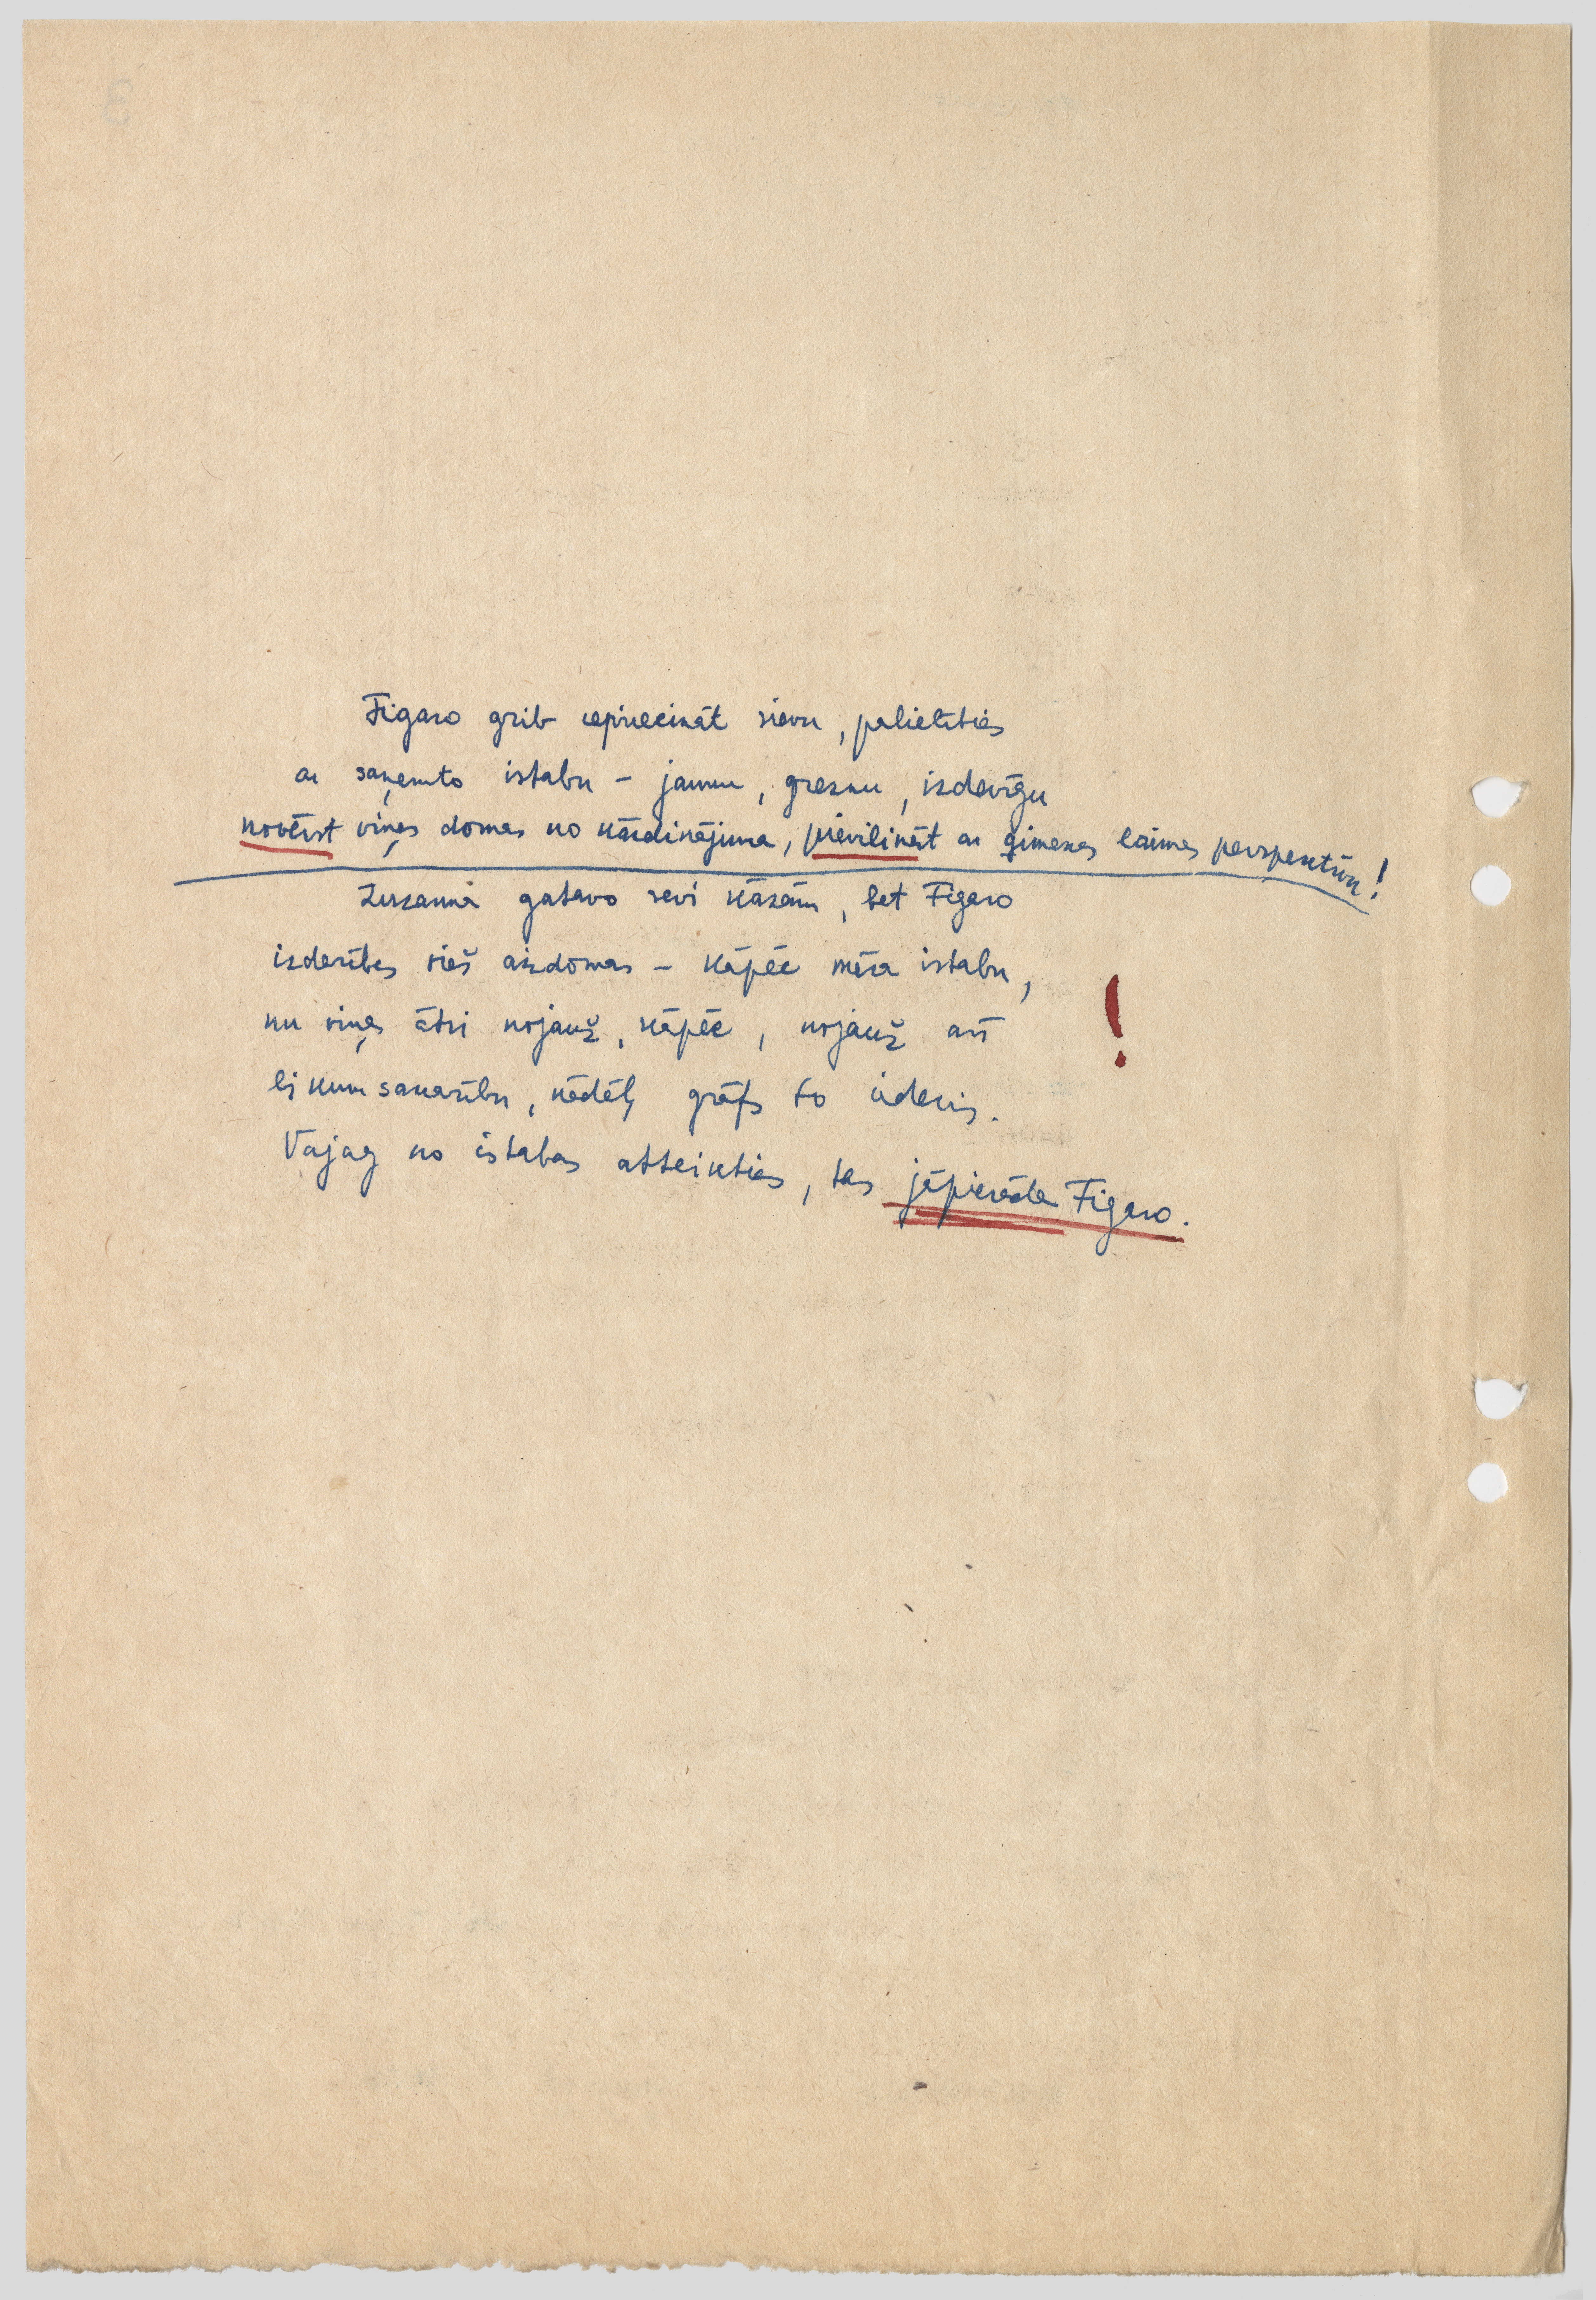 Figaro grib iepriecināt sievu, palielīties
ar saņemto istabu – jaunu, greznu, izdevīgu
novērst viņas domas no kārdinājuma, pievilināt ar ģimenes laimes perspektīvu!
Zuzanna gatavo sevi kāzām, bet Figaro
izdarības vieš aizdomas – kāpēc mēra istabu,
nu viņa ātri nojauž, kāpēc, nojauž arī
likumsakarību, kādēļ grāfs to ierādīs.
Vajag no istabas atteikties, tas jāpierāda Figaro.
!